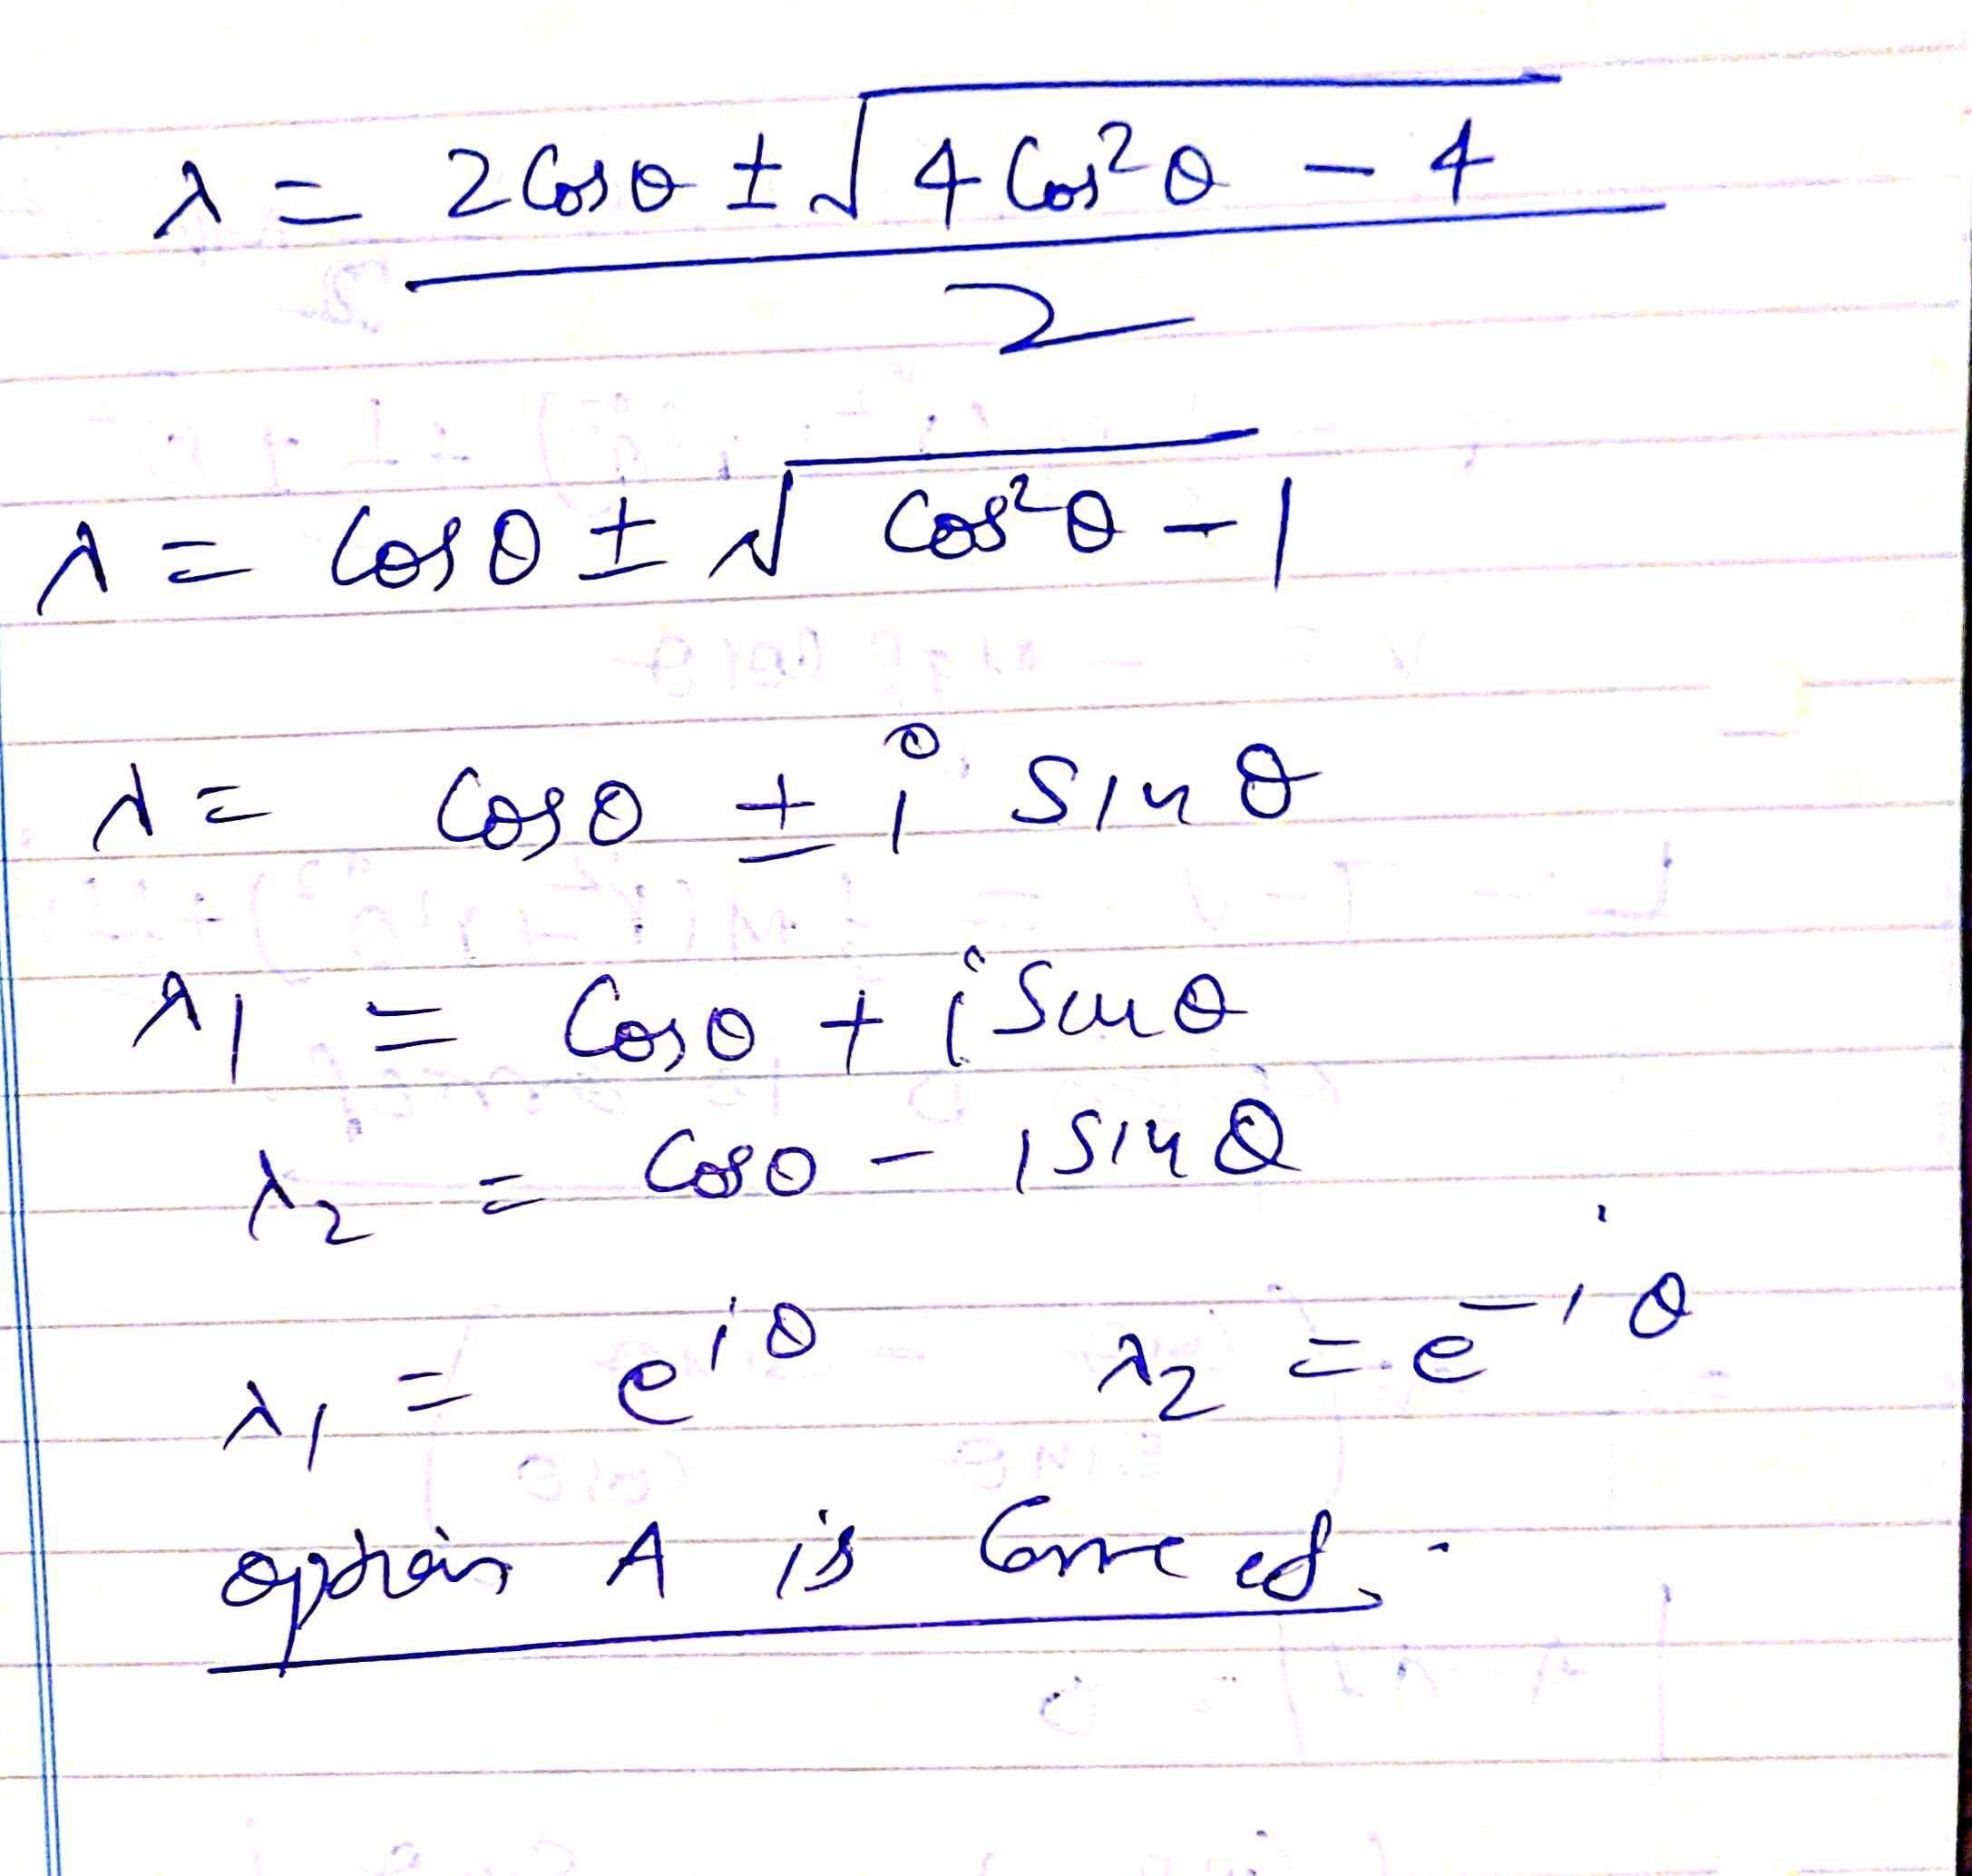 λ = 2 Cos θ ± √4 Cos² θ - 4
2
λ = Cos θ ± √ Cos² θ - 1
λ = Cos θ ± i Sin θ
λ1 = Cos θ + i Sin θ
λ2 = Cos θ - i Sin θ
λ1 = e^iθ λ2 = e^-iθ
option A is Correct.